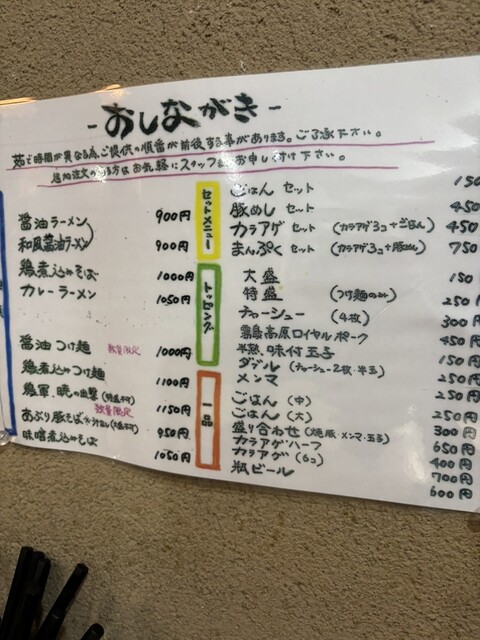 -おしながき-
茹で時間が異なる為、ご提供の順番が前後する事があります。ご了承下さい。
追加注文の方はお気軽にスタッフまでお申し付け下さい。
醤油ラーメン 900円
和風醤油ラーメン 900円
鶏煮込みそば 1000円
カレーラーメン 1050円
醤油つけ麺 数量限定 1000円
鶏煮込みつけ麺 1100円
鶏軍、暁の出撃 数量限定 1150円
あぶり豚そば 950円
味噌煮込みそば 1050円
セットメニュー
ごはんセット 150
豚めしセット 450
カラアゲセット (カラアゲ3コ+ごはん) 450
まんぷくセット (カラアゲ3コ+豚めし) 750
トッピング
大盛 150
特盛 (つけ麺のみ) 250円
チャーシュー (4枚) 300円
霧島高原ロイヤルポーク 450円
半熟味付玉子 150円
ダブル (チャーシュー2枚・半玉) 250円
メンマ 250円
一品
ごはん (中)
ごはん (大) 250円
盛り合わせ (焼豚・メンマ・玉子) 300円
カラアゲハーフ 650円
カラアゲ (6コ) 400円
瓶ビール 700円
600円